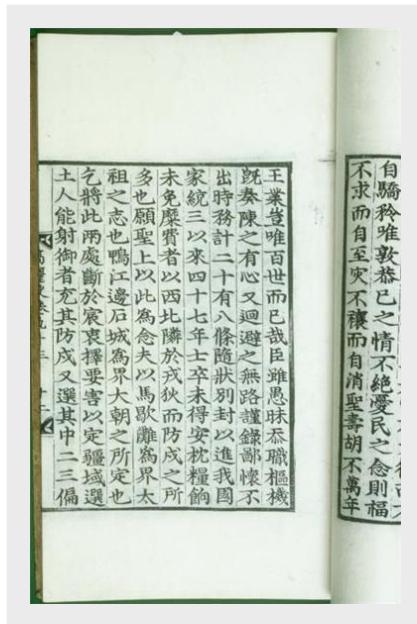 自驕矜唯敦恭已之情不絶憂民之念則福
不求而自至灾不禳而自消聖壽胡不萬年
王業豈唯百世而已哉臣雖愚昧忝職樞機
旣奏陳之有心又迴避之無路謹錄鄙懷不
出時務計二十有八條隨狀別封以進我國
家統三以來四十七年士卒未得安枕糧餉
未免糜費者以西北隣於戎狄而防戍之所
多也願聖上以此爲念夫以馬歇灘爲界太
祖之志也鴨江邊石城爲界大朝之所定也
乞將此兩處斷於宸衷擇要害以定疆域選
土人能射御者充其防戍又選其中二三偏
高麗史卷九